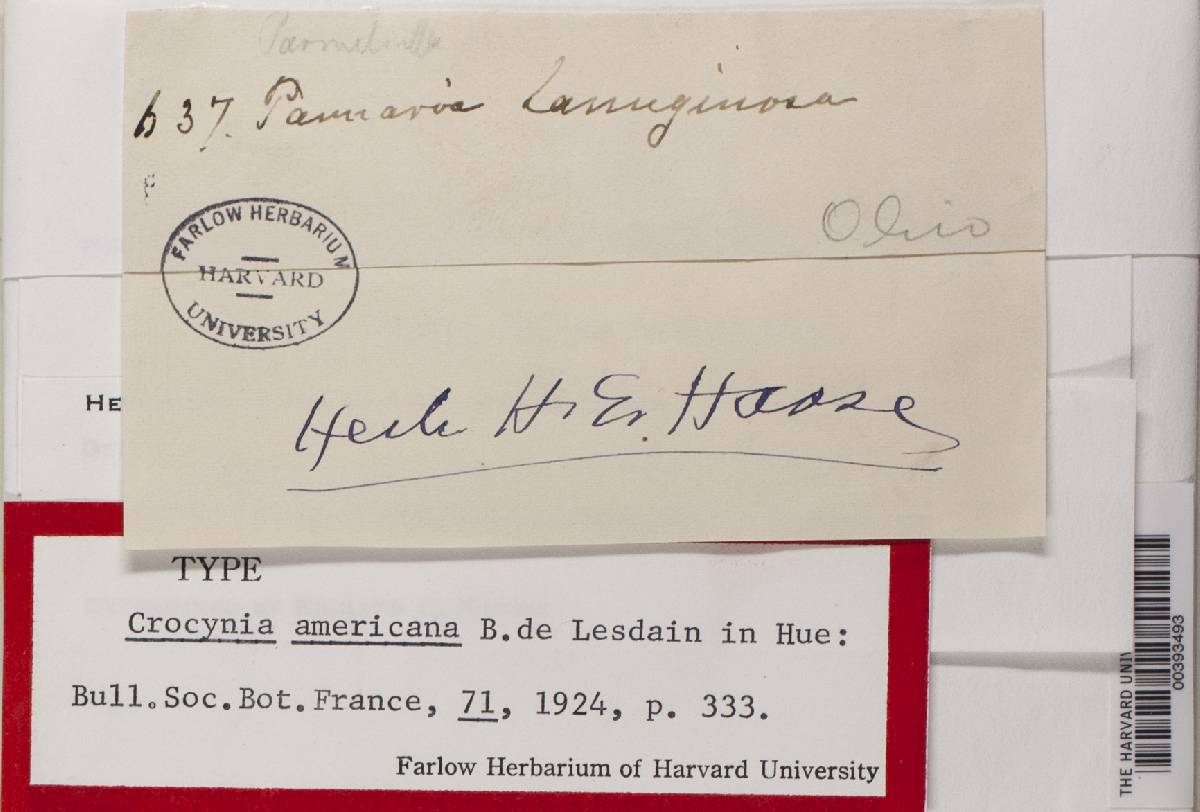 637. Pannaria lanuginosa
Ohio
FARLOW HERBARIUM
HARVARD
UNIVERSITY
Herb. H. E. Hasse
HE
TYPE
Crocynia americana B.de Lesdain in Hue:
Bull.Soc.Bot.France, 71, 1924, p. 333.
Farlow Herbarium of Harvard University
THE HARVARD UNI
00393493